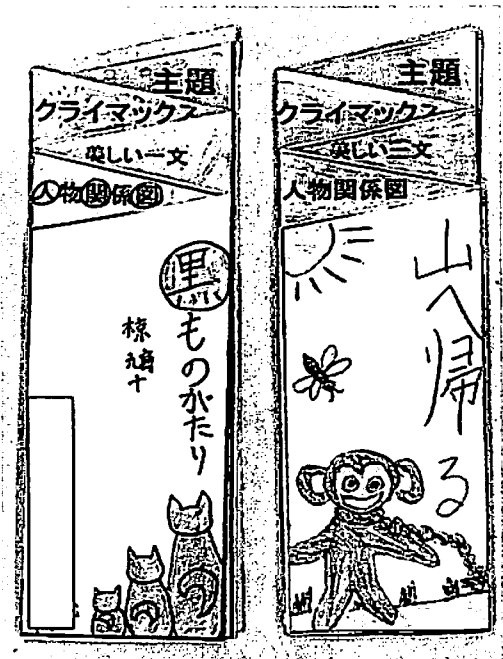 主題
クライマックス
美しい一文
人物関係図
黒ものがたり
椋鳩十
主題
クライマックス
美しい一文
人物関係図
山へ帰る